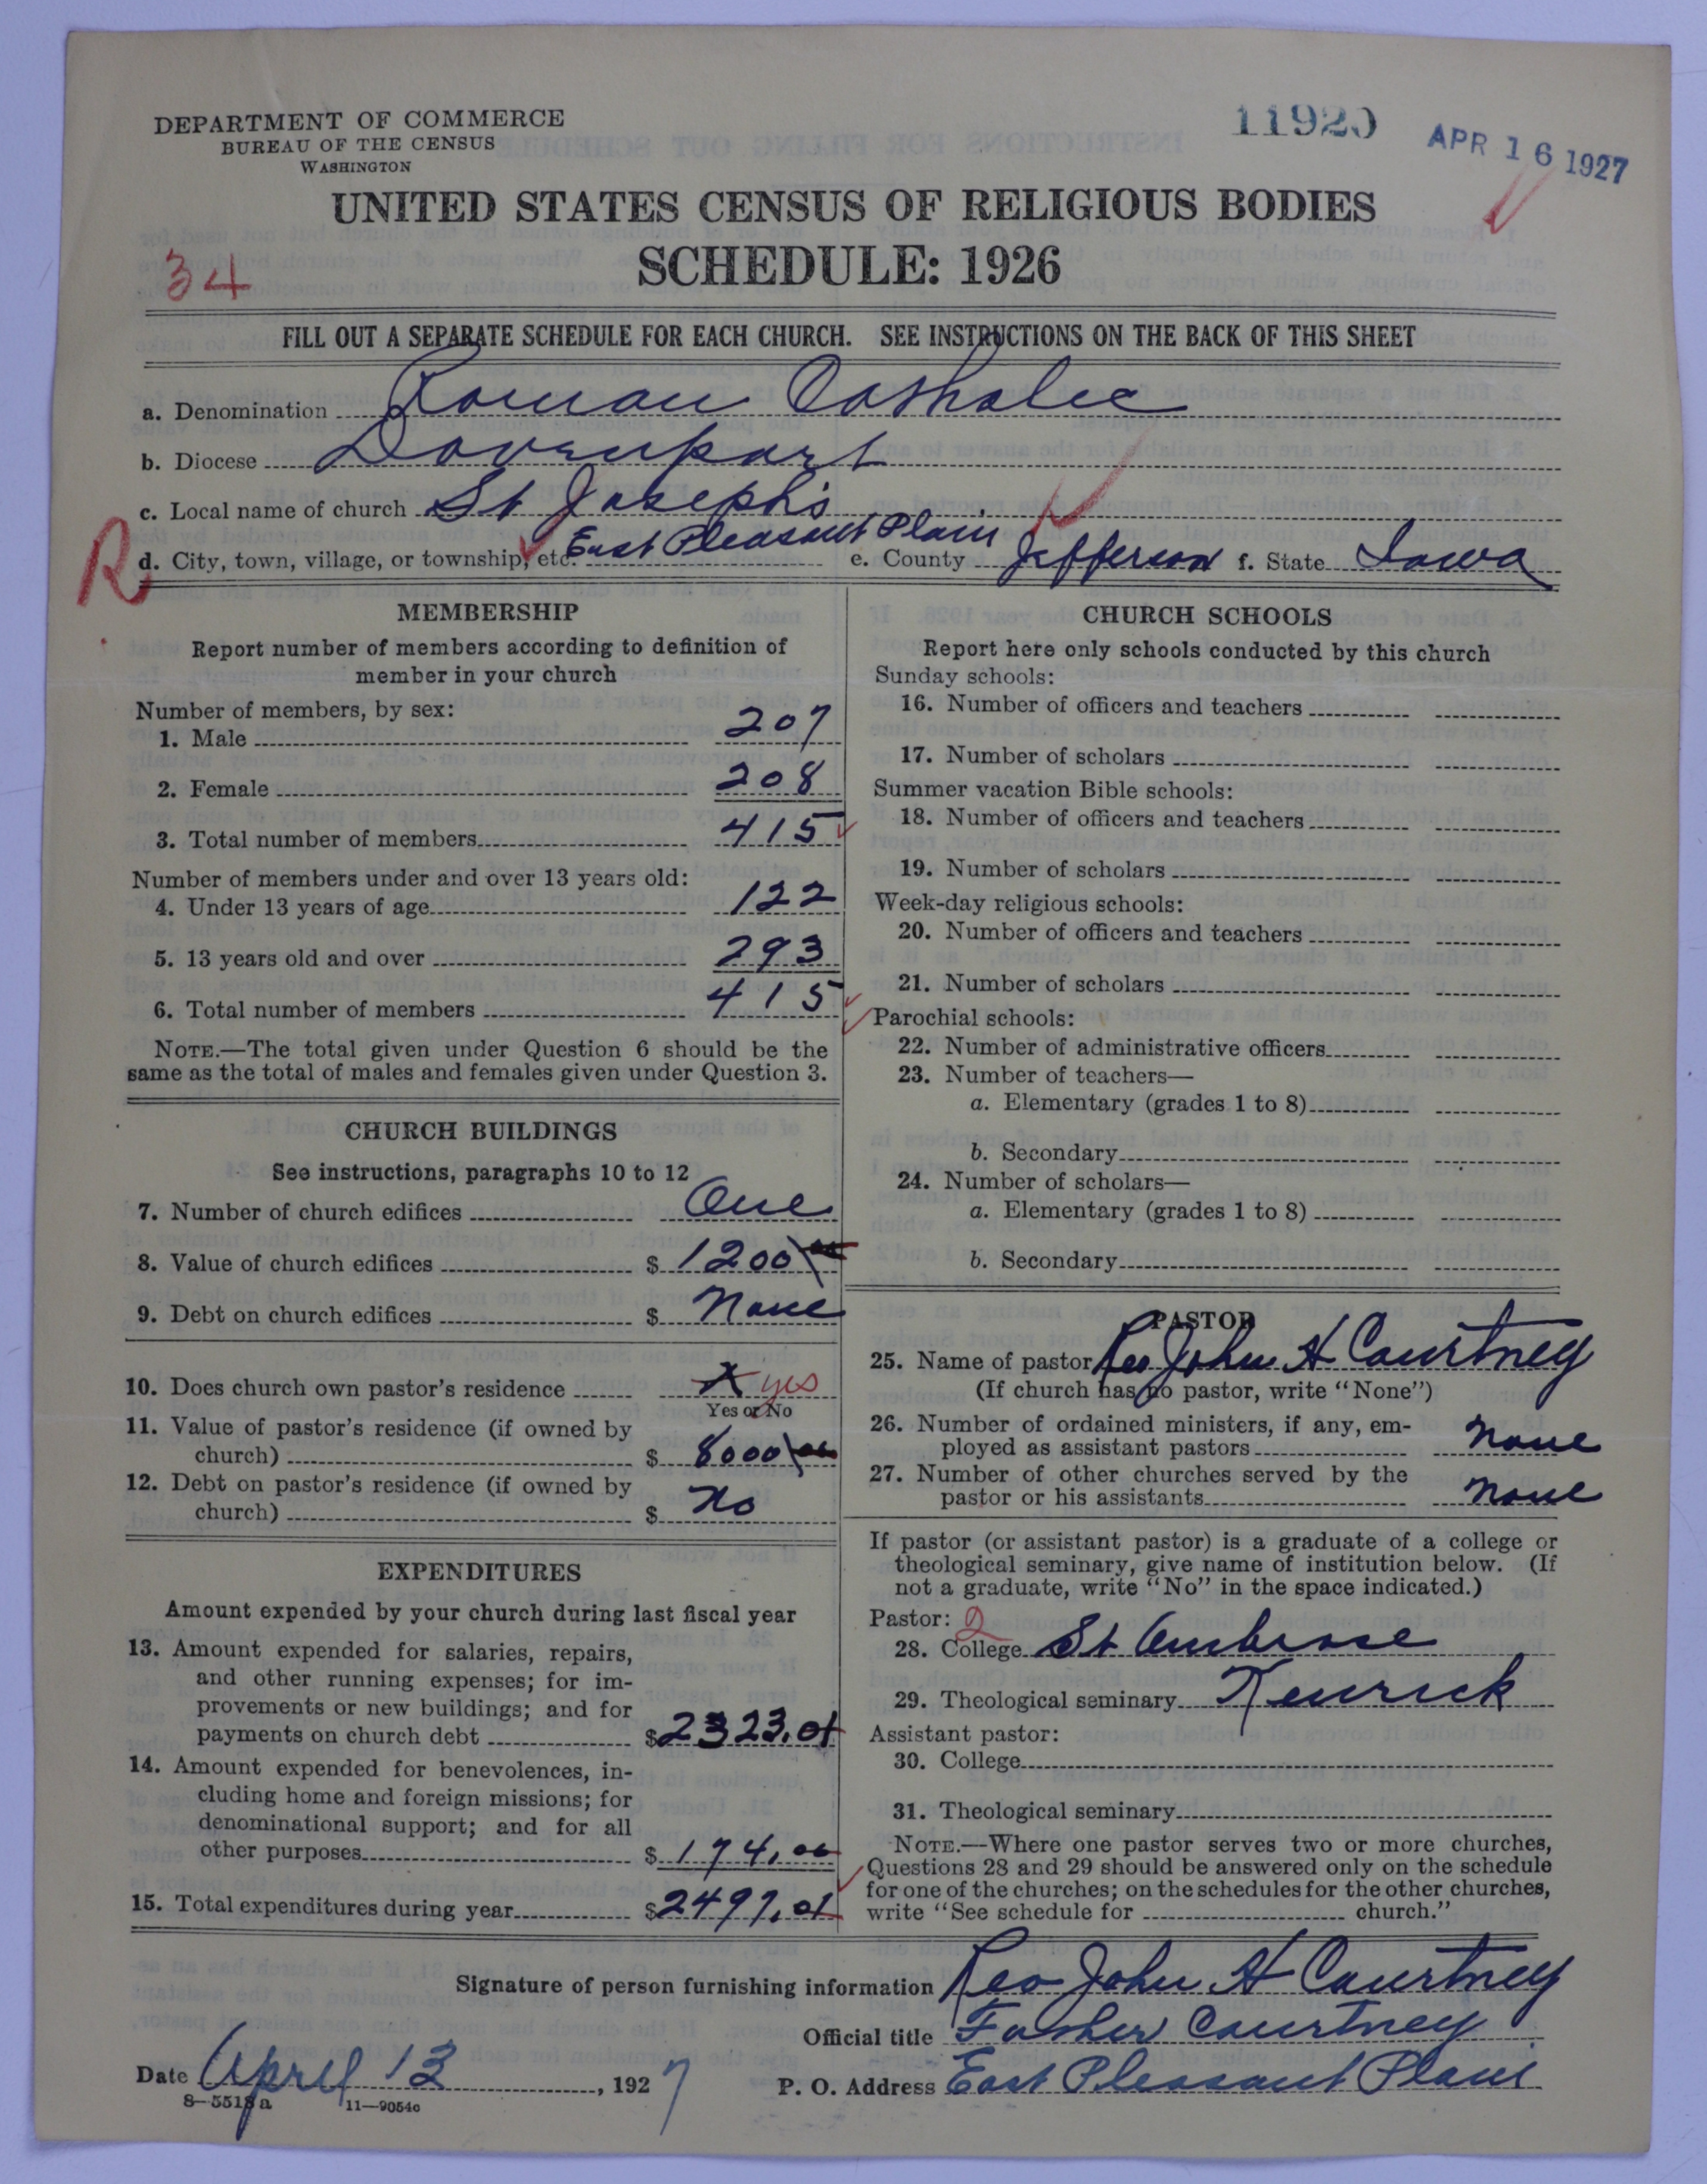 DEPARTMENT OF COMMERCE
BUREAU OF THE CENSUS
WASHINGTON
11920
APR 16 1927
UNITED STATES CENSUS OF RELIGIOUS BODIES
SCHEDULE: 1926
34
FILL OUT A SEPARATE SCHEDULE FOR EACH CHURCH. SEE INSTRUCTIONS ON THE BACK OF THIS SHEET
a. Denomination Roman Catholic
b. Diocese Davenport
c. Local name of church St Joseph's
R
d. City, town, village, or township, etc. East Pleasant Plain e. County Jefferson f. State Iowa
MEMBERSHIP
Report number of members according to definition of
member in your church
Number of members, by sex:
1. Male 207
2. Female 208
3. Total number of members 415
Number of members under and over 13 years old:
4. Under 13 years of age 122
5. 13 years old and over 293
6. Total number of members 415
NOTE.—The total given under Question 6 should be the
same as the total of males and females given under Question 3.
CHURCH BUILDINGS
See instructions, paragraphs 10 to 12
7. Number of church edifices One
8. Value of church edifices $ 1200
9. Debt on church edifices $ None
10. Does church own pastor's residence X yes
Yes or No
11. Value of pastor's residence (if owned by
church) $ 8000
12. Debt on pastor's residence (if owned by
church) $ No
EXPENDITURES
Amount expended by your church during last fiscal year
13. Amount expended for salaries, repairs,
and other running expenses; for im-
provements or new buildings; and for
payments on church debt $ 2323.01
14. Amount expended for benevolences, in-
cluding home and foreign missions; for
denominational support; and for all
other purposes $ 174.00
15. Total expenditures during year $ 2497.01
CHURCH SCHOOLS
Report here only schools conducted by this church
Sunday schools:
16. Number of officers and teachers
17. Number of scholars
Summer vacation Bible schools:
18. Number of officers and teachers
19. Number of scholars
Week-day religious schools:
20. Number of officers and teachers
21. Number of scholars
Parochial schools:
22. Number of administrative officers
23. Number of teachers—
a. Elementary (grades 1 to 8)
b. Secondary
24. Number of scholars—
a. Elementary (grades 1 to 8)
b. Secondary
PASTOR
25. Name of pastor Rev John H Courtney
(If church has no pastor, write "None")
26. Number of ordained ministers, if any, em-
ployed as assistant pastors None
27. Number of other churches served by the
pastor or his assistants None
If pastor (or assistant pastor) is a graduate of a college or
theological seminary, give name of institution below. (If
not a graduate, write "No" in the space indicated.)
Pastor: 2
28. College St Ambrose
29. Theological seminary Kenrick
Assistant pastor:
30. College
31. Theological seminary
NOTE.—Where one pastor serves two or more churches,
Questions 28 and 29 should be answered only on the schedule
for one of the churches; on the schedules for the other churches,
write "See schedule for church."
Signature of person furnishing information Rev John H Courtney
Official title Father Courtney
Date April 13, 1927 P. O. Address East Pleasant Plain
8—5518a 11—9054c